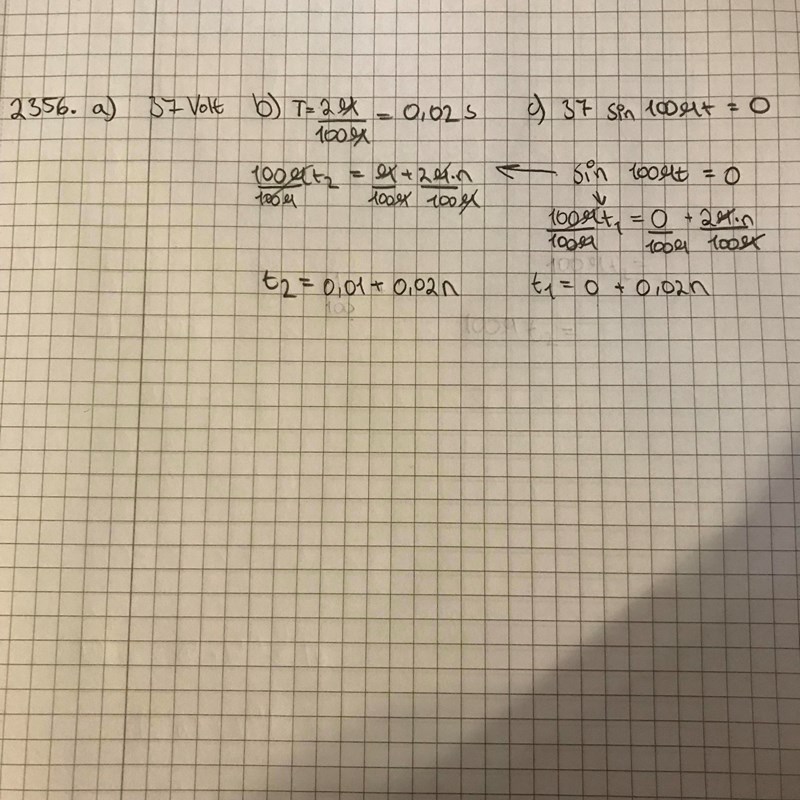 2356. a) 37 Volt b) T = 2π/100π = 0,02 s c) 37 sin 100πt = 0
100πt₂/100π = π/100π + 2π·n/100π ← sin 100πt = 0
↓
100πt₁/100π = 0/100π + 2π·n/100π
t₂ = 0,01 + 0,02n t₁ = 0 + 0,02n